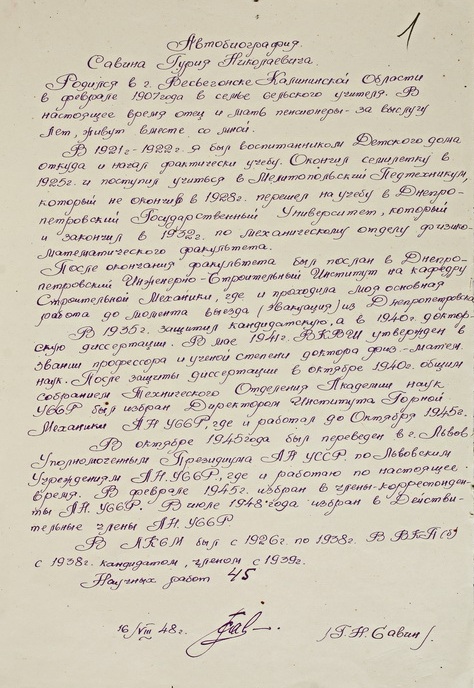 1
Автобиография.
Савина Гурия Николаевича.
Родился в г. Весьегонске Калининской Области
в феврале 1907 года в семье сельского учителя. В
настоящее время отец и мать пенсионеры - за выслугу
лет, живут вместе со мной.
В 1921г - 1922г. я был воспитанником Детского дома
откуда и начал фактически учебу. Окончил семилетку в
1925г. и поступил учиться в Мелитопольский Педтехникум,
который не окончив в 1928г. перешел на учебу в Днепро-
петровский Государственный Университет, который
и закончил в 1932г. по механическому отделу физико-
математического факультета.
После окончания факультета был послан в Днепро-
петровский Инженерно-Строительный Институт на кафедру
Строительной Механики, где и проходила моя основная
работа до момента выезда (эвакуация) из Днепропетровска
В 1935г. защитил кандидатскую, а в 1940г. доктор-
скую диссертации. В мае 1941г. ВКВШ утвержден в
звании профессора и ученой степени доктора физ.-матем.
наук. После защиты диссертации в октябре 1940г. общим
собранием Технического Отделения Академии наук
УССР был избран Директором Института Горной
Механики АН УССР, где и работал до Октября 1945г.
В октябре 1945 года был переведен в г. Львов
Уполномоченным Президиума АН УССР. по Львовским
Учреждениям АН. УССР., где и работаю по настоящее
время. В феврале 1945г. избран в члены-корреспонден-
ты АН. УССР. В июле 1948 года избран в Действи-
тельные члены АН. УССР
В ЛКСМ был с 1926г. по 1938г. В ВКП(б)
с 1938г. кандидатом, членом с 1939г.
Научных работ 45
16/VIII 48г. /Г.Н. Савин/.